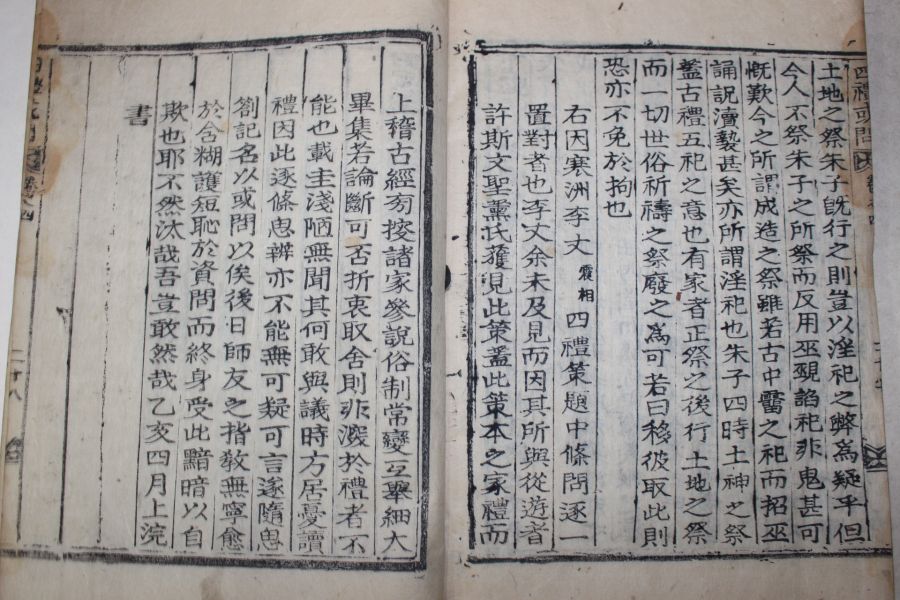 四禮或問
土地之祭朱子旣行之則豈以淫祀之弊爲疑乎但
今人不祭朱子之所祭而反用巫覡諂祀非鬼甚可
慨歎今之所謂成造之祭雖若古中霤之祀而招巫
誦說瀆褻甚矣亦所謂淫祀也朱子四時土神之祭
蓋古禮五祀之意也有家者正祭之後行土地之祭
而一切世俗祈禱之祭廢之爲可若曰移彼取此則
恐亦不免於拘也
右因寒洲李丈 震相 四禮策題中條問逐一
置對者也李丈余未及見而因其所與從遊者
許斯文聖薰氏獲見此策蓋此策本之家禮而
上稽古經旁按諸家參說俗制常變互擧細大
畢集若論斷可否折衷取舍則非深於禮者不
能也載圭淺陋無聞其何敢與議時方居憂讀
禮因此逐條思辨亦不能無可疑可言遂隨思
箚記名以或問以俟後日師友之指敎無寧愈
於含糊護短恥於資問而終身受此黯暗以自
欺也耶不然汰哉吾豈敢然哉乙亥四月上浣
書
二十八